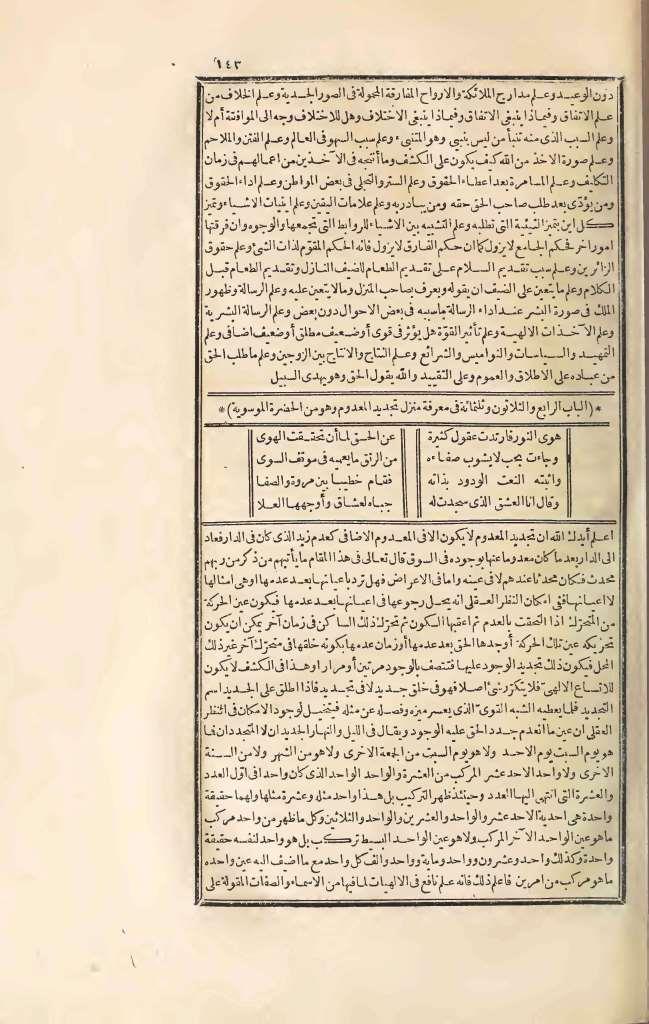 ١٤٣
دون الوعيد وعلم مدارج الملائكة والارواح المفارقة المحمولة فى الصور الجسدية وعلم الخلاف من
علم الاتفاق وفيماذا ينبغى الاتفاق وفيماذا ينبغى الاختلاف وهل للاختلاف وجه الى الموافقة أم لا
وعلم السبب الذى منه تنبأ من ليس بنبى وهو المتنبىء وعلم سبب السهو فى العالم وعلم الفتن والملاحم
وعلم صورة الاخذ من الله كيف يكون على الكشف وما أنتجه فى الآخذين من اعمالهم فى زمان
التكليف وعلم المساهرة بعد اعطاء الحقوق وعلم الستر والتجلى فى بعض المواطن وعلم اداء الحقوق
ومن يؤدى بعد طلب صاحب الحق حقه ومن يبادر به وعلم علامات اليقين وعلم اينيات الاشياء وتميز
كل اين بتميز البنية التى تطلبه وعلم التشبيه بين الاشياء للروابط التى تجمعها والوجوه وان فرقتها
امور اخر فحكم الجامع لا يزول كما ان حكم الفارق لا يزول فانه الحكم المقوم لذات الشئ وعلم حقوق
الزائرين وعلم سبب تقديم السلام على تقديم الطعام للضيف النازل وتقديم الطعام قبل
الكلام وعلم ما يتعين على الضيف ان يقوله ويعرف به صاحب المنزل وما لا يتعين عليه وعلم الرسالة وظهور
الملك فى صورة البشر عند اداء الرسالة ما سببه فى بعض الاحوال دون بعض وعلم الرسالة البشرية
وعلم الآخذات الالهية وعلم تأثير القوة هل يؤثر فى قوى أو ضعيف مطلق أو ضعيف اضافى وعلم
التمهيد والسياسات والنواميس والشرائع وعلم النتاج والانتاج بين الزوجين وعلم ما طلب الحق
من عباده على الاطلاق والعموم وعلى التقييد والله يقول الحق وهو يهدى السبيل
*(الباب الرابع والثلاثون وثلثمائة فى معرفة منزل تجديد المعدوم وهو من الحضرة الموسوية)*
هوى النور فارتدت عقول كثيرة عن الحق لما أن تحققت الهوى
وجاءت بحب لا يشوب صفاءه من الرنق ما يعميه فى موقف السوى
واثبته النعت الودود بذاته فقام خطيبا بين مروة والصفا
وقال انا العشق الذى سجدت له جباه لعشاق وأوجهها العلا
اعلم أيدك الله ان تجديد المعدوم لا يكون الا فى المعدوم الاضافى كعدم زيد الذى كان فى الدار فعاد
الى الدار بعد ما كان معدوما عنها بوجوده فى السوق قال تعالى فى هذا المقام ما يأتيهم من ذكر من ربهم
محدث فكان محدثا عندهم لا فى عينه واما فى الاعراض فهل ترد باعيانها بعد عدمها او هى امثالها
لا اعيانها ففى امكان النظر العقلى انه يحل رجوعها فى اعيانها بعد عدمها فيكون عين الحركة
من المتحرك اذا التحقت بالعدم ثم اعقبها السكون ثم تحرك ذلك الساكن فى زمان آخر يمكن ان يكون
تحركه عين تلك الحركة أوجدها الحق بعد عدمها أو زمان عدمها بكونه خلقها فى متحرك آخر غير ذلك
المحل فيكون ذلك تجديد الوجود عليها فتتصف بالوجود مرتين أو مرارا وهذا فى الكشف لا يكون
للاتساع الالهى فلا يتكرر شئ اصلا فهو فى خلق جديد لا فى تجديد فاذا اطلق على الجديد اسم
التجديد فلما يعطيه الشبه القوى الذى يعسر ميزه وفصله عن مثله فيتخيل لوجود الامكان فى النظر
العقلى ان عين ما انعدم جدد الحق عليه الوجود ويقال فى الليل والنهار الجديدان لا المتجددان فما
هو يوم السبت يوم الاحد ولا هو يوم السبت من الجمعة الاخرى ولا هو من الشهر ولا من السنة
الاخرى ولا واحد الاحد عشر المركب من العشرة والواحد الواحد الذى كان واحدا فى اول العدد
والعشرة التى انتهى اليها العدد وحينئذ ظهر التركيب بل هذا واحد مثله وعشرة مثلها ولهما حقيقة
واحدة هى احدية الاحد عشر والواحد والعشرين والواحد والثلاثين وكل ما ظهر من واحد مركب
ما هو عين الواحد الآخر المركب ولا هو عين الواحد البسيط تركب بل هو واحد لنفسه حقيقة
واحدة وكذلك واحد وعشرون وواحد وماية وواحد والف كل واحد مع ما اضيف اليه عين واحده
ما هو مركب من امرين فاعلم ذلك فانه علم نافع فى الالهيات لما فيها من الاسماء والصفات المقولة على